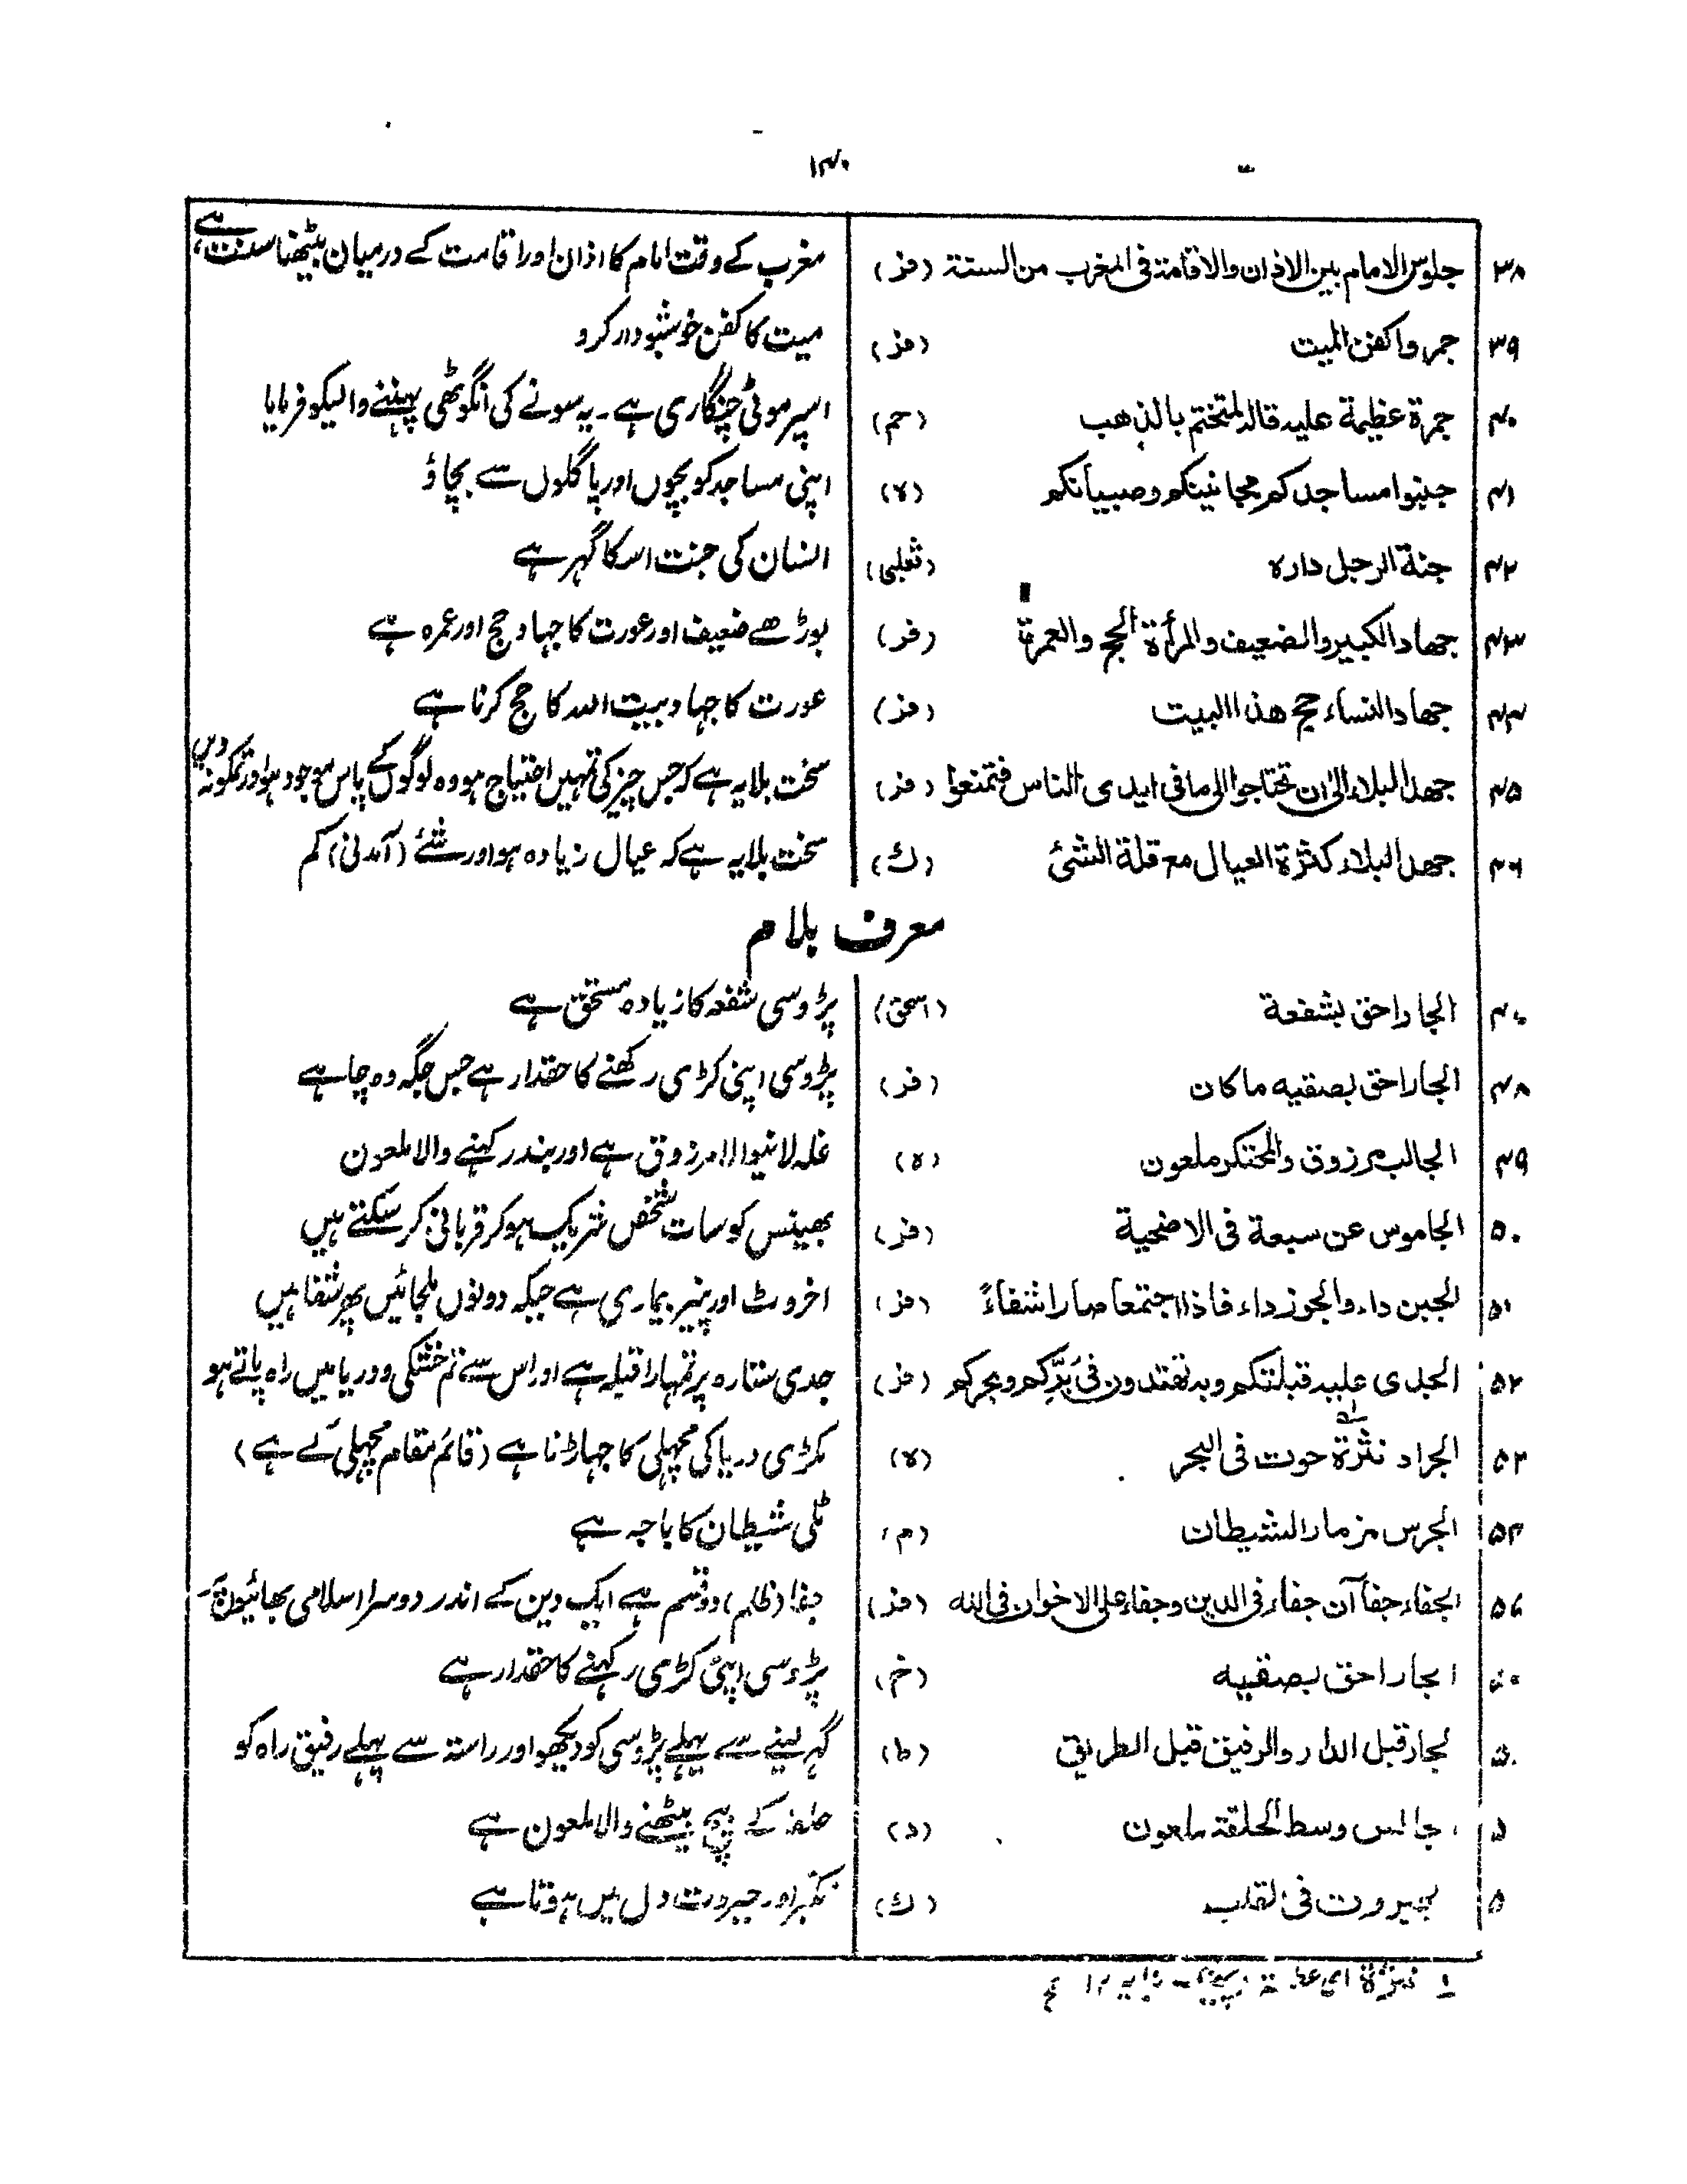 ۱۴۰
۳۸ جلوس الامام بین الاذان والاقامة فی المغرب من السنة (فر) مغرب کے وقت امام کا اذان اور اقامت کے درمیان بیٹھنا سنت ہے
۳۹ جمروا کفن المیت (فر) میت کا کفن خوشبودار کرو
۴۰ جمرة عظیمة علیه قاله لمتختم بالذهب (حم) اسپر موٹی چنگاری ہے۔ یہ سونے کی انگوٹھی پہننے والیکو فرمایا
۴۱ جنبوا مساجدکم مجانینکم وصبیانکم (ه) اپنی مساجد کو بچوں اور پاگلوں سے بچاؤ
۴۲ جنة الرجل داره (ثعلبی) انسان کی جنت اسکا گہر ہے
۴۳ جهاد الکبیر والضعیف والمرأة الحج والعمرة (فر) بوڑھے ضعیف اور عورت کا جہاد حج اور عمرہ ہے
۴۴ جهاد النساء حج هذا البیت (فر) عورت کا جہاد بیت اللہ کا حج کرنا ہے
۴۵ جهد البلاء الیٰ ان تحتاجوا الی ما فی ایدی الناس فتمنعوا (فر) سخت بلا یہ ہے کہ جس چیز کی تمہیں احتیاج ہو وہ لوگوں کے پاس موجود ہو اور تمکو نہ دیں
۴۶ جهد البلاء کثرة العیال مع قلة الشئ (ك) سخت بلا یہ ہے کہ عیال زیادہ ہو اور شئے (آمدنی) کم
معرف بلام
۴۰ الجار احق بشفعة (اسحق) پڑوسی شفعہ کا زیادہ مستحق ہے
۴۸ الجار احق بصقبه ما کان (فر) پڑوسی اپنی کڑی رکھنے کا حقدار ہے جس جگہ وہ چاہے
۴۹ الجالب مرزوق والمحتکر ملعون (ه) غلہ لانیوالا مرزوق ہے اور بند رکہنے والا ملعون
۵۰ الجاموس عن سبعة فی الاضحیة (فر) بھینس کو سات شخص شریک ہو کر قربانی کر سکتے ہیں
۵۱ الجبن داء والجوز داء فاذا اجتمعا صارا شفاءً (فر) اخروٹ اور پنیر بیماری ہے جبکہ دونوں ملجائیں پھر شفا ہیں
۵۲ الجدی علیه قبلتکم وبه تهتدون فی بَرِّکم وبحرکم (فر) جدی ستارہ پر تمہارا قبلہ ہے اور اس سے تم خشکی و دریا میں راہ پاتے ہو
۵۳ الجراد نثرة حوت فی البحر (ه) مکڑی دریا کی مچھلی کا جہاڑنا ہے (قائم مقام مچہلی کے ہے)
۵۴ الجرس مزمار الشیطان (م) ٹلی شیطان کا باجہ ہے
۵۶ الجفاء جفاآن جفاء فی الدین وجفاء علی الاخوان فی الله (فر) جفا (ظلم) دو قسم ہے ایک دین کے اندر دوسرا اسلامی بھائیوں پر
الجار احق بصقبه (خ) پڑوسی اپنی کڑی رکہنے کا حقدار ہے
الجار قبل الدار والرفیق قبل الطریق (ط) گہر لینے سے پہلے پڑوسی کو دیکھو اور راستہ سے پہلے رفیق راہ کو
جالس وسط الحلقة ملعون (د) حلقہ کے بیچ بیٹھنے والا ملعون ہے
الجبروت فی القلب (ك) تکبر اور جبروت دل میں ہوتا ہے